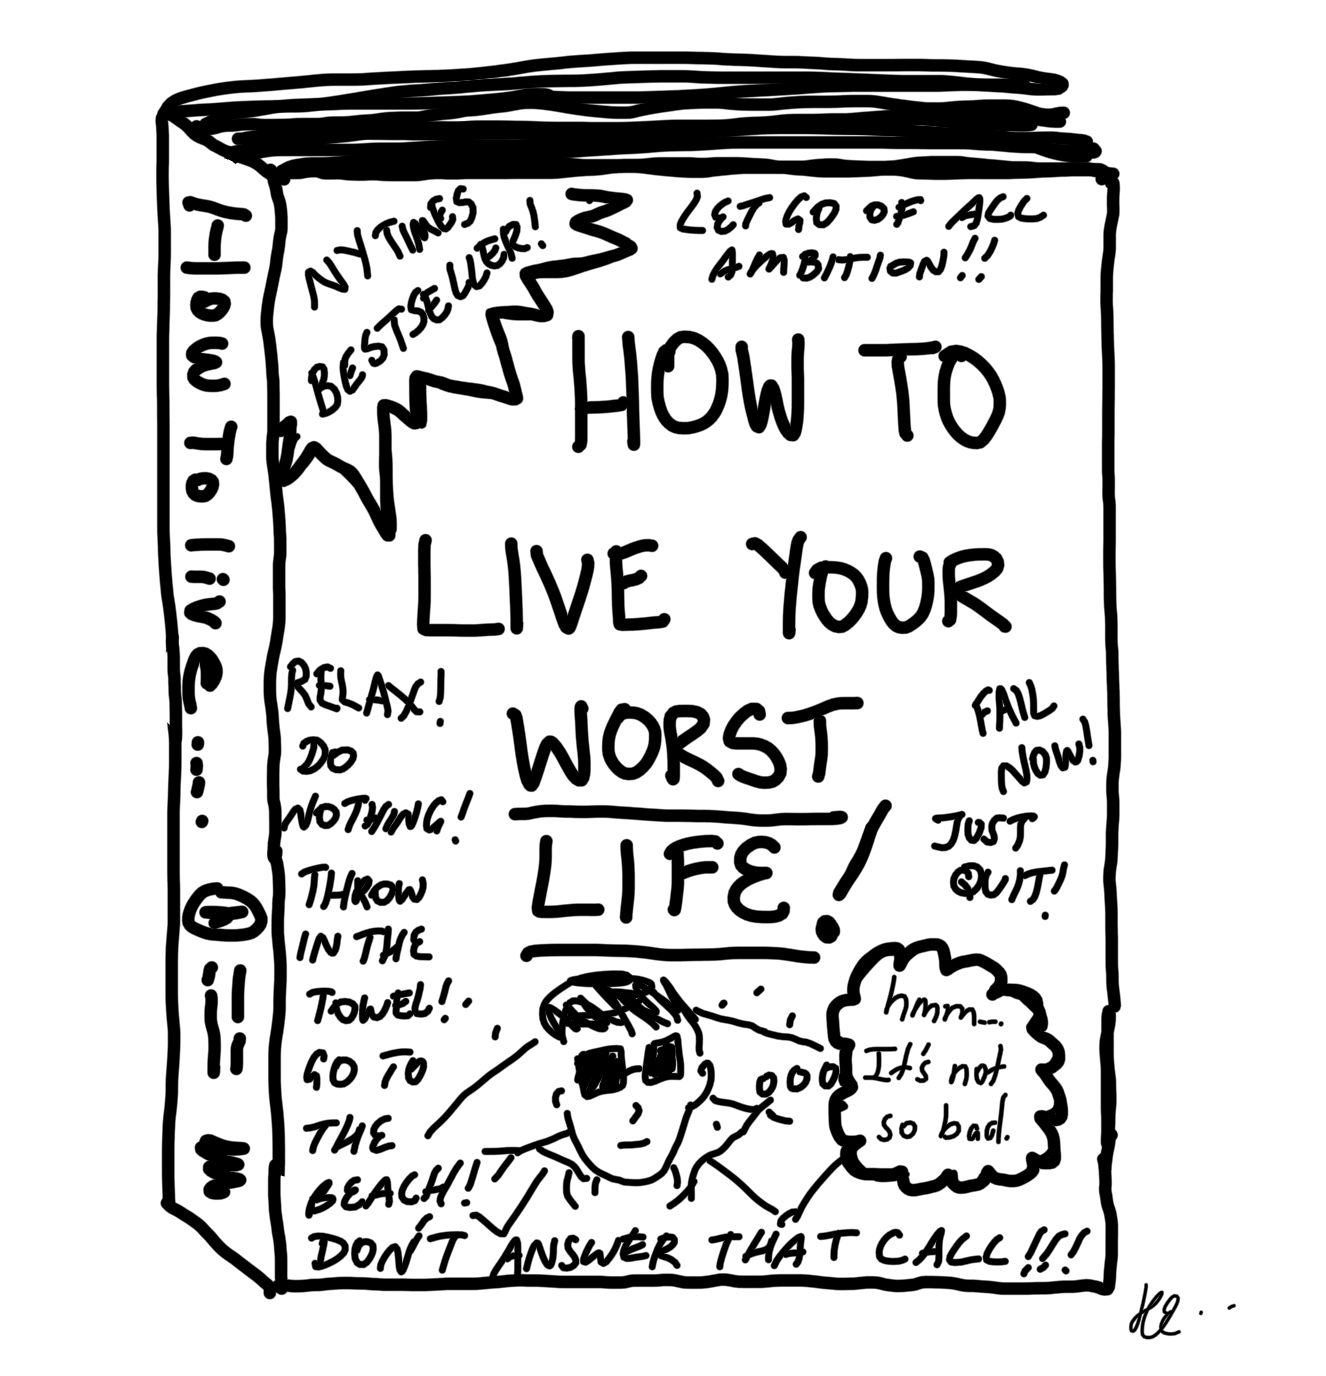 How To live....
NY TIMES
BESTSELLER!
LET GO OF ALL
AMBITION!!
HOW TO
LIVE YOUR
WORST
LIFE!
RELAX!
DO
NOTHING!
THROW
IN THE
TOWEL!
GO TO
THE
BEACH!
FAIL
NOW!
JUST
QUIT!
hmm...
It's not
so bad.
DON'T ANSWER THAT CALL!!!